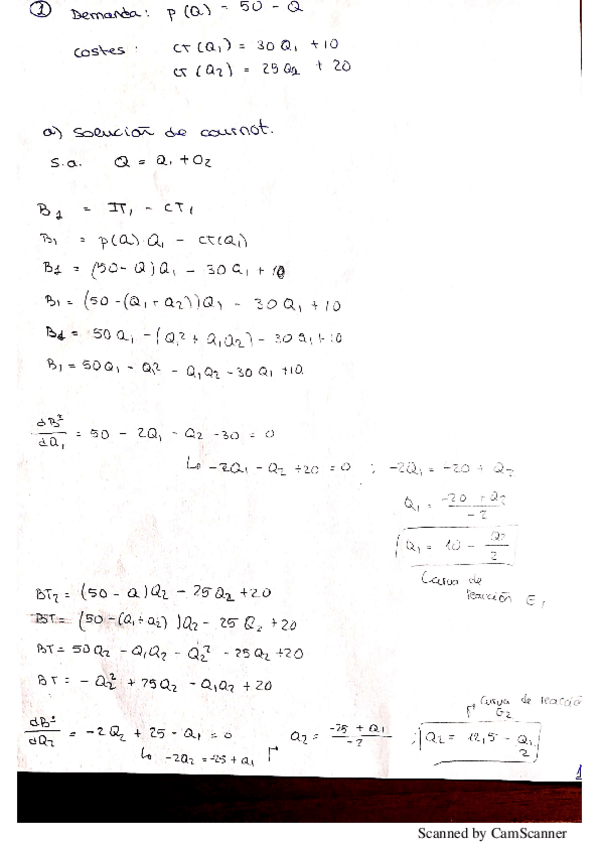 ① Demanda: p(Q) = 50 - Q
costes: CT(Q1) = 30Q1 + 10
CT(Q2) = 25Q2 + 20
a) Solución de cournot.
s.a. Q = Q1 + Q2
B1 = IT1 - CT1
B1 = p(Q)·Q1 - CT(Q1)
B1 = (50-Q)Q1 - 30Q1 + 10
B1 = (50-(Q1+Q2))Q1 - 30Q1 + 10
B1 = 50Q1 - (Q1² + Q1Q2) - 30Q1 + 10
B1 = 50Q1 - Q1² - Q1Q2 - 30Q1 + 10
dB²/dQ1 = 50 - 2Q1 - Q2 - 30 = 0
↳ -2Q1 - Q2 + 20 = 0 ; -2Q1 = -20 + Q2
Q1 = (-20 + Q2)/-2
Q1 = 10 - Q2/2
Curva de
reacción E1
BT2 = (50-Q)Q2 - 25Q2 + 20
BT = (50-(Q1+Q2))Q2 - 25Q2 + 20
BT = 50Q2 - Q1Q2 - Q2² - 25Q2 + 20
BT = -Q2² + 25Q2 - Q1Q2 + 20
Curva de reacción
E2
dB²/dQ2 = -2Q2 + 25 - Q1 = 0 Q2 = (-25 + Q1)/-2 ; Q2 = 12,5 - Q1/2
↳ -2Q2 = -25 + Q1
1
Scanned by CamScanner